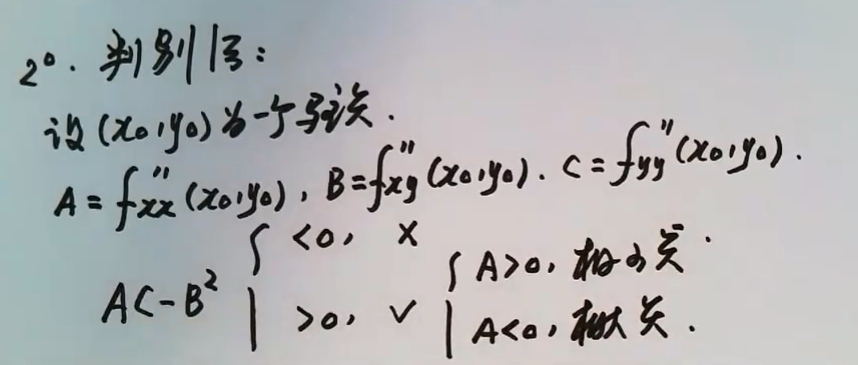 2°. 判别法:
设(x₀,y₀)为一个驻点.
A=f″xx(x₀,y₀), B=f″xy(x₀,y₀). C=f″yy(x₀,y₀).
AC-B² { <0, ×
>0, √ { A>0, 极小点.
A<0, 极大点.